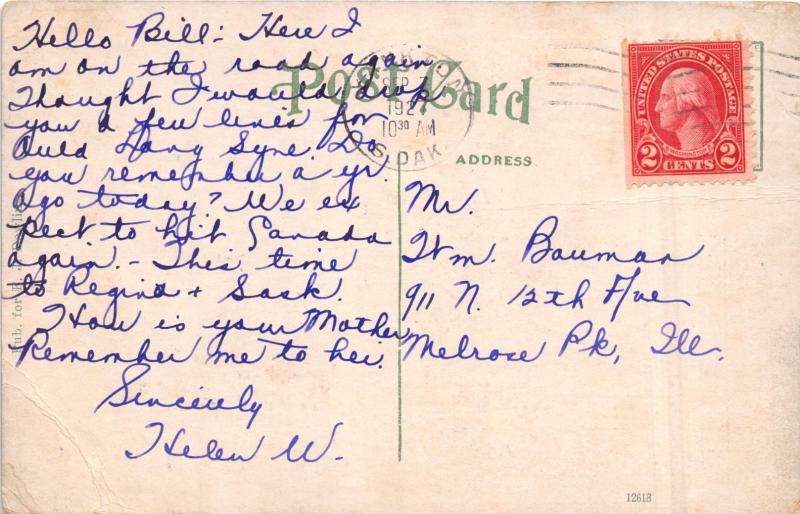 Hello Bill:- Here I
am on the road again.
Thought I would drop
you a few lines for
Auld Lang Syne. Do
you remember a yr.
ago today? We ex
pect to hit Canada
again. - This time
to Regina + Sask.
How is your Mother
Remember me to her.
Sincerely
Helen W.
Post Card
SEP
192
10 30 AM
S. DAK.
UNITED STATES POSTAGE
WASHINGTON
2 CENTS 2
ADDRESS
Mr.
Wm. Bauman
911 N. 12th Ave
Melrose Pk, Ill.
Pub. for
12618